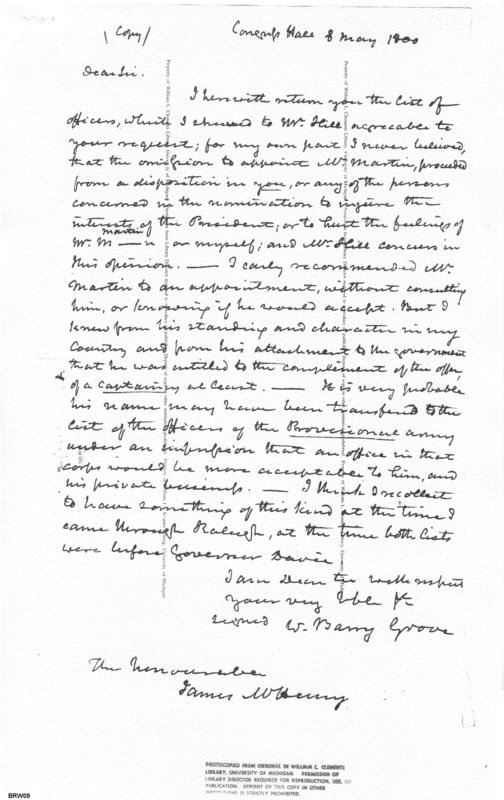 (Copy)
Congress Hall 8 May 1800
Dear Sir.
I herewith return you the list of
officers, which I shewed to Mr. Hill agreeable to
your request; for my own part I never believed,
that the omission to appoint Mr. Martin, proceeded
from a disposition in you, or any of the persons
concerned in the nomination to injure the
interests of the President; or to hurt the feelings of
martin
Mr. M——n or myself; and Mr. Hill concurs in
this opinion. — I early recommended Mr.
Martin to an appointment, without consulting
him, or knowing if he would accept. But I
knew from his standing and character in my
Country and from his attachment to the government
that he was entitled to the compliment of the offer,
of a captaincy at least. — It is very probable
his name may have been transferred to the
list of the officers of the Provisional army
under an impression that an office in that
corps would be more acceptable to him, and
his private business. — I think I recollect
to have something of this kind at the time I
came through Raleigh, at the time both lists
were before Governor Davie
I am Dear Sir with respect
your very
signed W. Barry Grove
The honourable
James McHenry
PHOTOCOPIED FROM ORIGINAL IN WILLIAM L. CLEMENTS
LIBRARY, UNIVERSITY OF MICHIGAN. PERMISSION OF
LIBRARY DIRECTOR REQUIRED FOR REPRODUCTION, USE, OR
PUBLICATION. DEPOSIT OF THIS COPY IN OTHER
INSTITUTIONS IS STRICTLY PROHIBITED.
BRW09